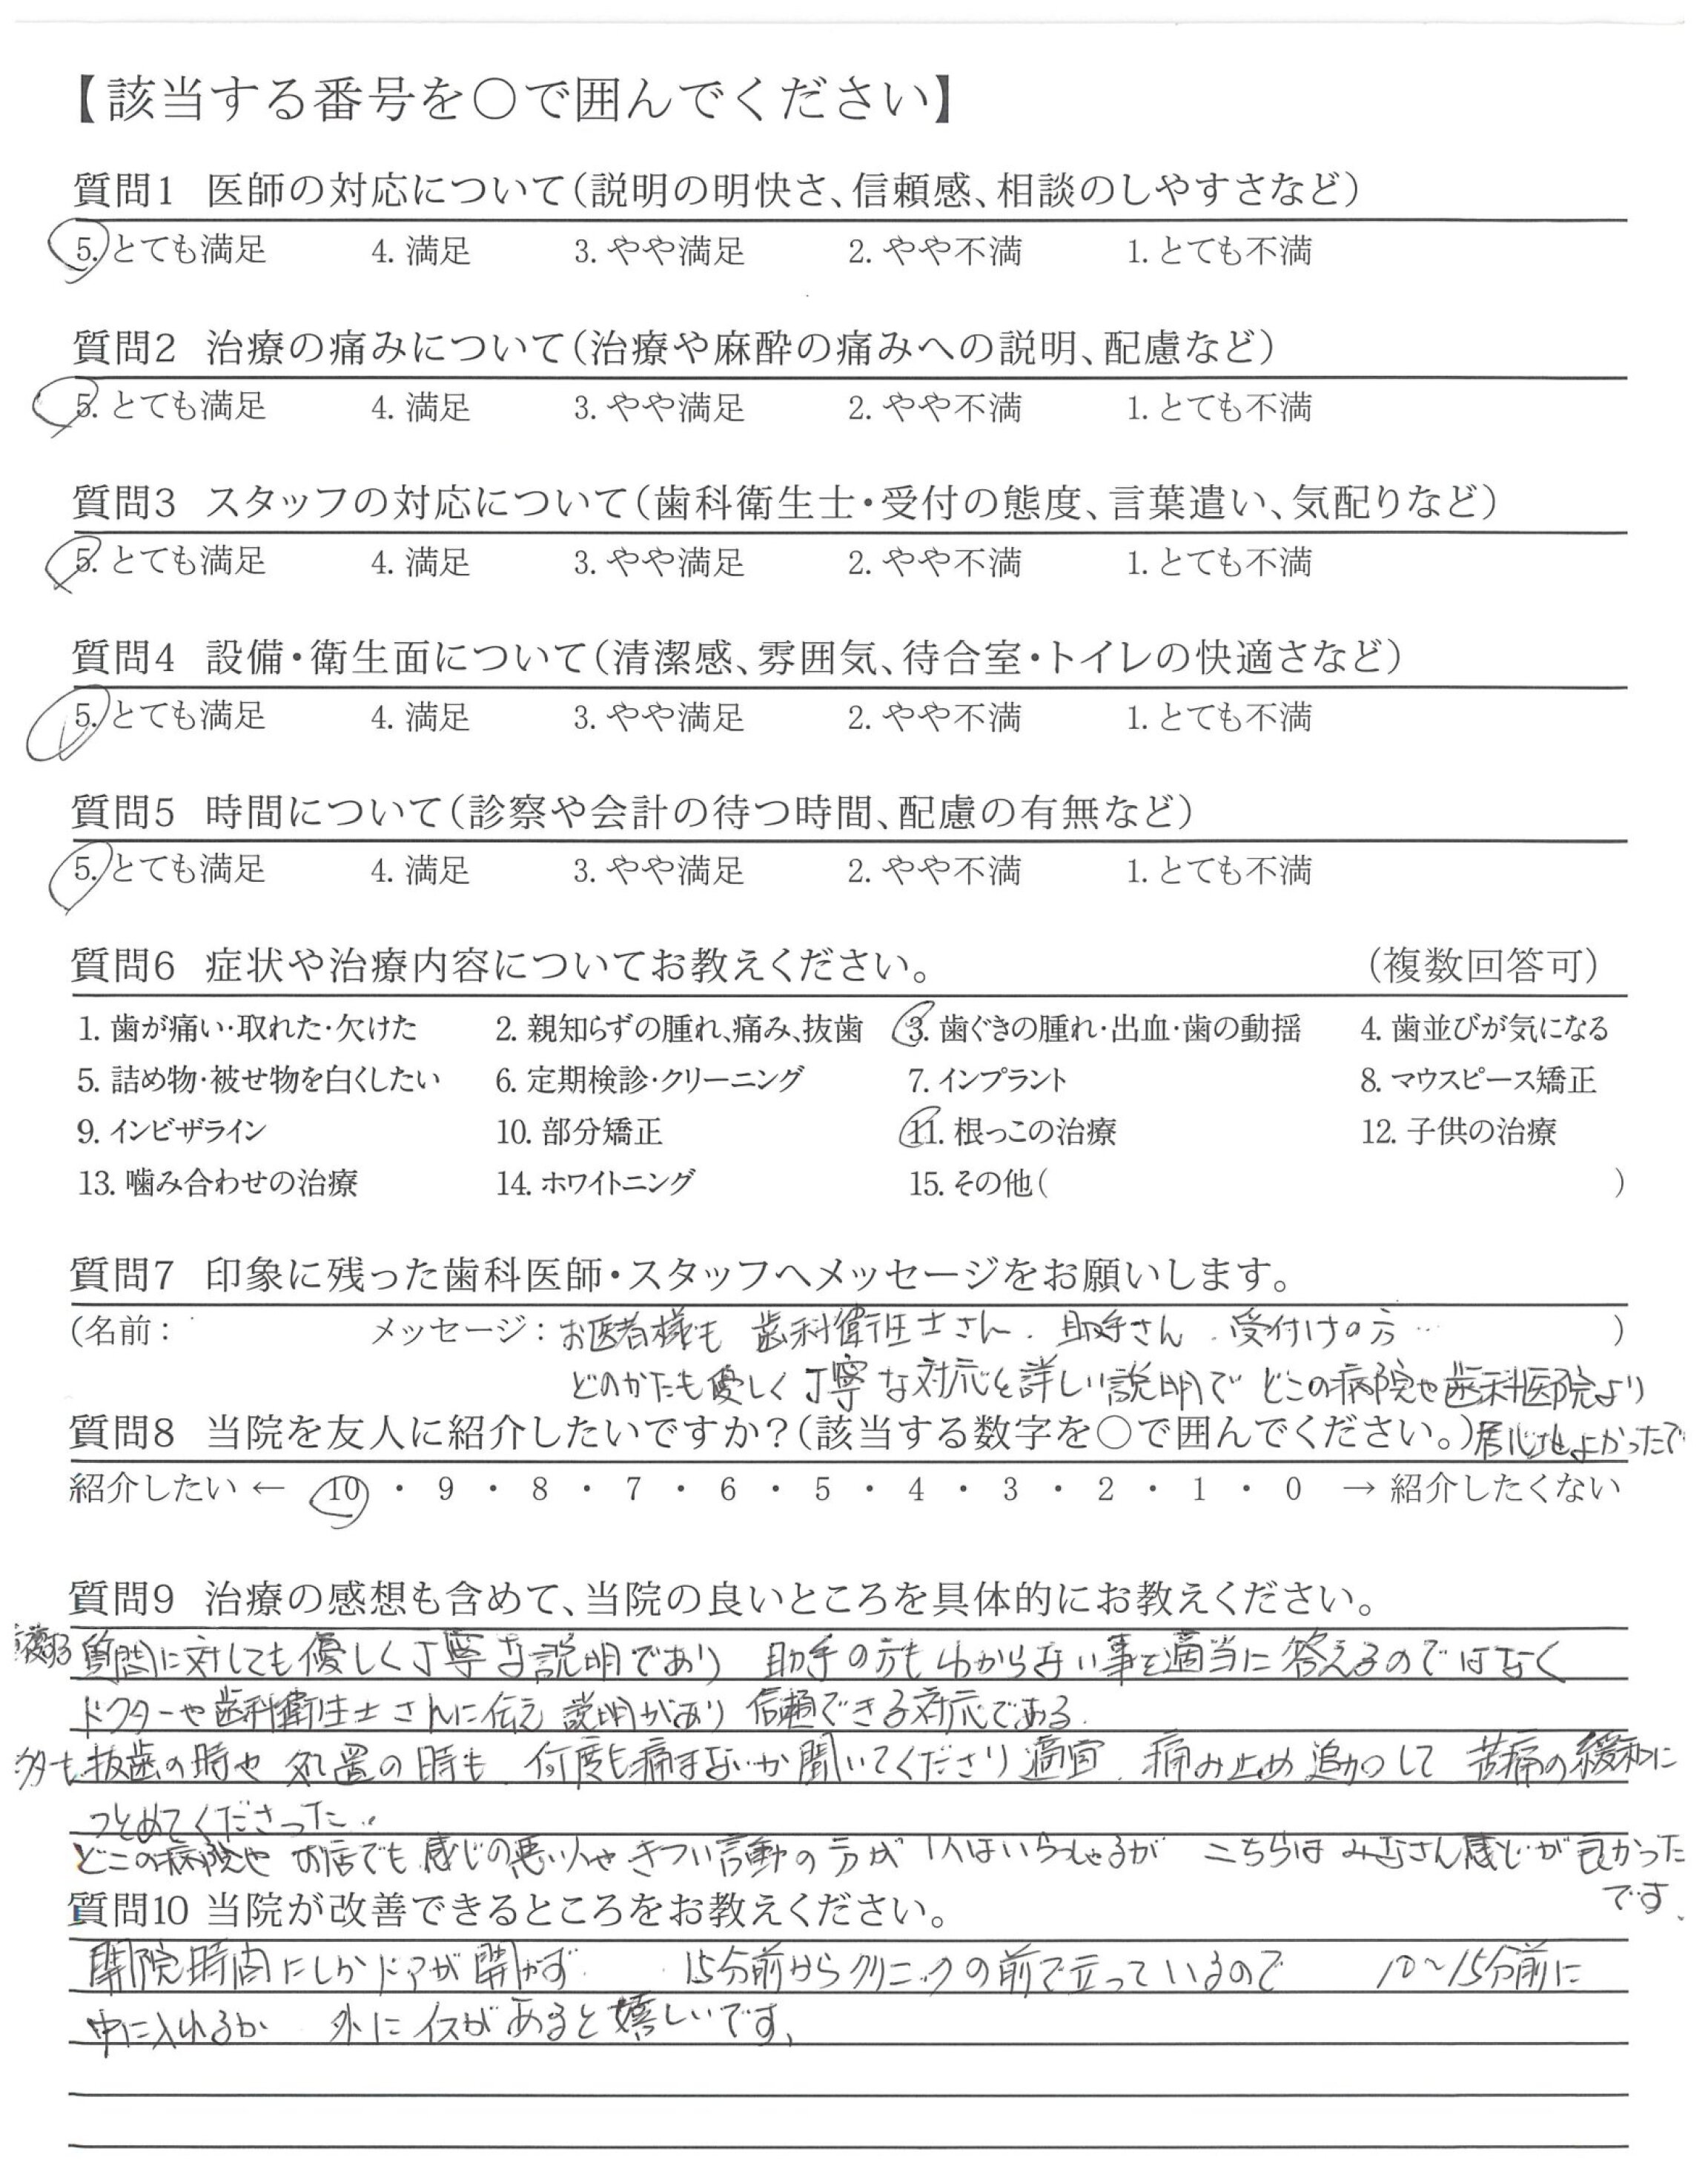 【該当する番号を○で囲んでください】
質問1 医師の対応について(説明の明快さ、信頼感、相談のしやすさなど)
5. とても満足 4. 満足 3. やや満足 2. やや不満 1. とても不満
質問2 治療の痛みについて(治療や麻酔の痛みへの説明、配慮など)
5. とても満足 4. 満足 3. やや満足 2. やや不満 1. とても不満
質問3 スタッフの対応について(歯科衛生士・受付の態度、言葉遣い、気配りなど)
5. とても満足 4. 満足 3. やや満足 2. やや不満 1. とても不満
質問4 設備・衛生面について(清潔感、雰囲気、待合室・トイレの快適さなど)
5. とても満足 4. 満足 3. やや満足 2. やや不満 1. とても不満
質問5 時間について(診察や会計の待つ時間、配慮の有無など)
5. とても満足 4. 満足 3. やや満足 2. やや不満 1. とても不満
質問6 症状や治療内容についてお教えください。 (複数回答可)
1. 歯が痛い・取れた・欠けた 2. 親知らずの腫れ、痛み、抜歯 3. 歯ぐきの腫れ・出血・歯の動揺 4. 歯並びが気になる
5. 詰め物・被せ物を白くしたい 6. 定期検診・クリーニング 7. インプラント 8. マウスピース矯正
9. インビザライン 10. 部分矯正 11. 根っこの治療 12. 子供の治療
13. 噛み合わせの治療 14. ホワイトニング 15. その他( )
質問7 印象に残った歯科医師・スタッフへメッセージをお願いします。
(名前: メッセージ: お医者様も 歯科衛生士さん. 助手さん. 受付けの方 )
どのかたも優しく丁寧な対応と詳しい説明で どこの病院や歯科医院より
質問8 当院を友人に紹介したいですか?(該当する数字を○で囲んでください。) 居心地よかったで
紹介したい ← 10 ・ 9 ・ 8 ・ 7 ・ 6 ・ 5 ・ 4 ・ 3 ・ 2 ・ 1 ・ 0 → 紹介したくない
質問9 治療の感想も含めて、当院の良いところを具体的にお教えください。
質問に対しても優しく丁寧な説明であり 助手の方もわからない事を適当に答えるのではなく
ドクターや歯科衛生士さんに伝え 説明があり 信頼できる対応である.
抜歯の時や 処置の時も. 何度も痛まないか聞いてくださり 適宜. 痛み止め追加して 苦痛の緩和に
つとめてくださった.
どこの病院や お店でも 感じの悪い人や きつい言動の方が 1人はいらっしゃるが こちらは みなさん感じが良かった
です.
質問10 当院が改善できるところをお教えください。
開院時間にしかドアが開かず 15分前からクリニックの前で立っているので 10〜15分前に
中に入れるか 外にイスがあると嬉しいです.